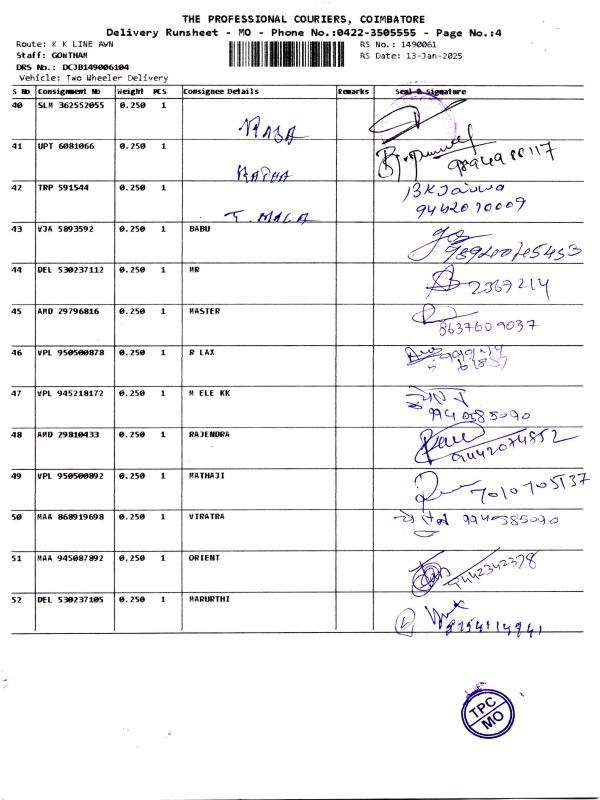 THE PROFESSIONAL COURIERS, COIMBATORE
Delivery Runsheet - MO - Phone No.:0422-3505555 - Page No.:4
Route: K K LINE AVN RS No.: 1490061
Staff: GONTHAM RS Date: 13-Jan-2025
DRS No.: DCJB149006104
Vehicle: Two Wheeler Delivery
S No Consignment No Weight PCS Consignee Details Remarks Seal & Signature
40 SLM 362552055 0.250 1 RAJA
41 UPT 6081066 0.250 1 RADHA 9894988117
42 TRP 591544 0.250 1 T. MALA
9442070009
43 VJA 5893592 0.250 1 BABU
44 DEL 530237112 0.250 1 MR 2367214
45 AMD 29796816 0.250 1 MASTER 8637609037
46 VPL 950500878 0.250 1 R LAX
47 VPL 945218172 0.250 1 M ELE KK
9940585090
48 AMD 29810433 0.250 1 RAJENDRA 9442074852
49 VPL 950500892 0.250 1 MATHAJI 7010705137
50 MAA 868919698 0.250 1 VIRATRA 9940585090
51 MAA 945087892 0.250 1 ORIENT 9442342378
52 DEL 530237105 0.250 1 MARURTHI
TPC
MO